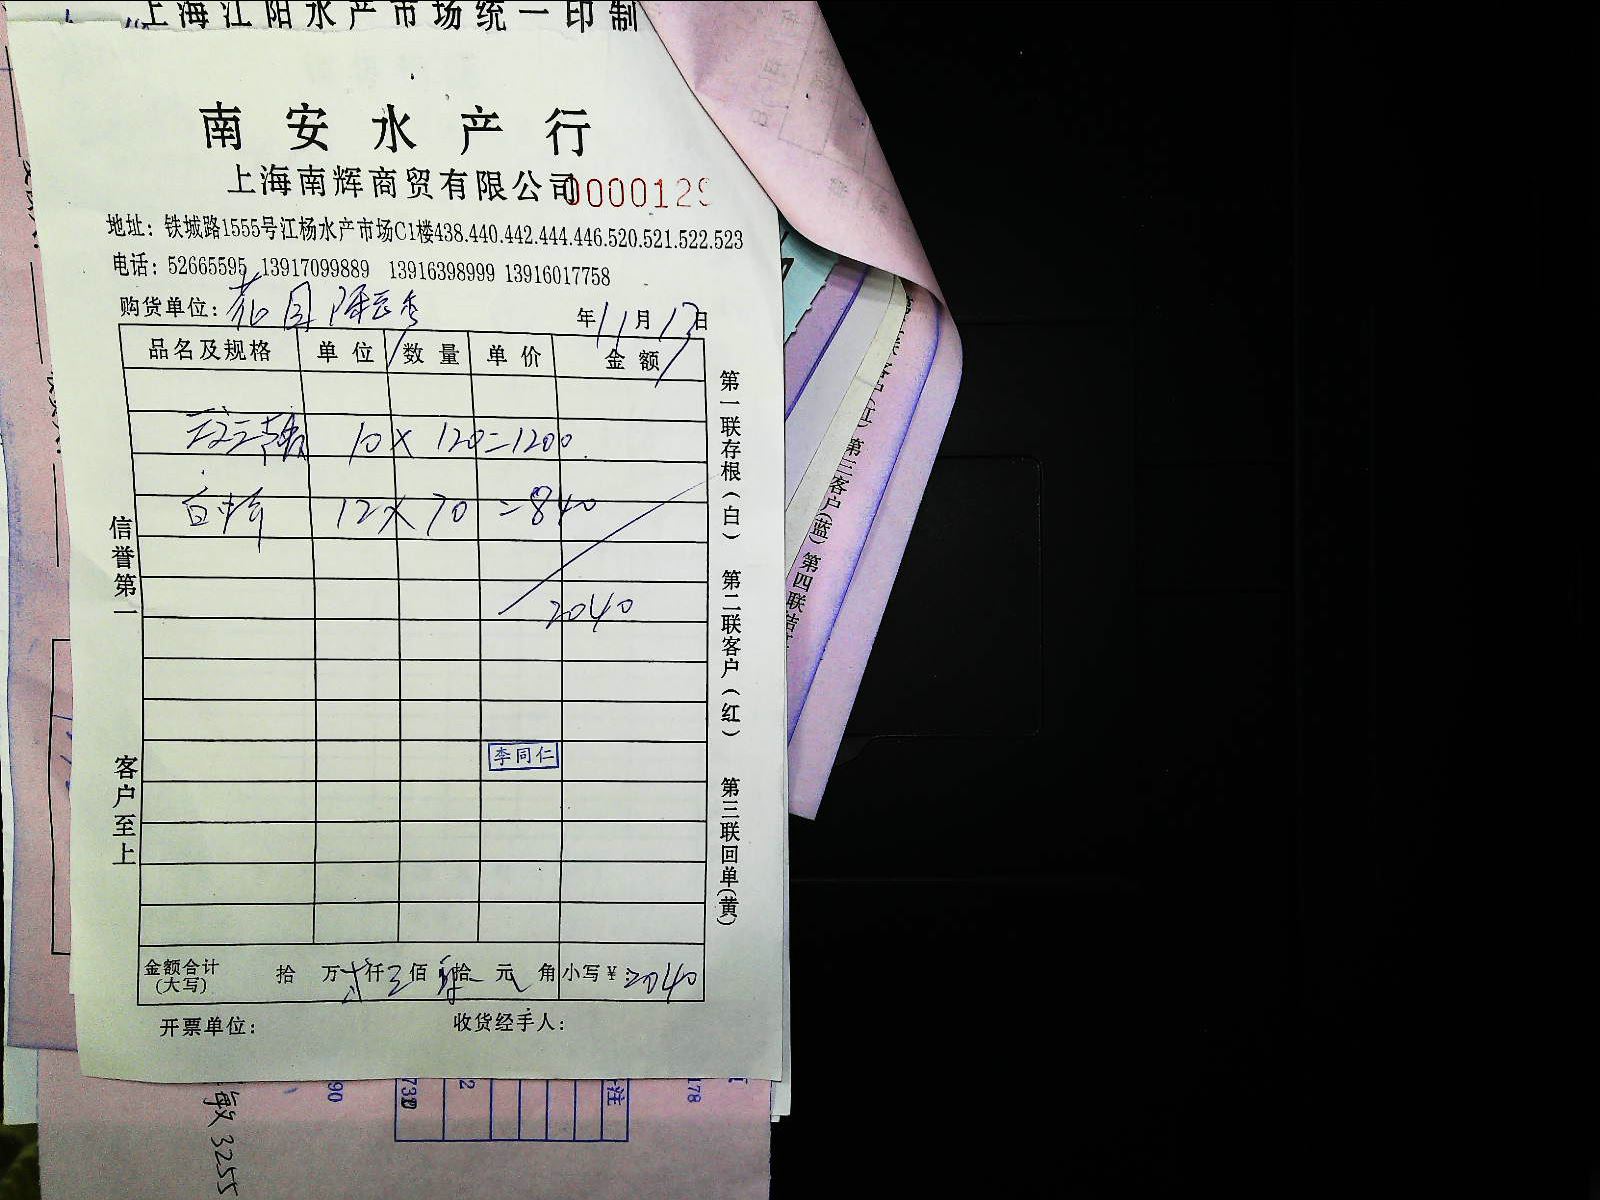 上海江阳水产市场统一印制
南安水产行
上海南辉商贸有限公司 000012
地址：铁城路1555号江杨水产市场C1楼438.440.442.444.446.520.521.522.523
电话：52665595 13917099889 13916398999 13916017758
购货单位：花园
年11月17日
品名及规格 单位 数量 单价 金额
10 × 120=1200
12 × 70 =840
2040
李同仁
金额合计 拾 万 仟 佰 拾 元 角 小写¥2040
(大写)
开票单位： 收货经手人：
信誉第一
客户至上
第一联存根（白） 第二联客户（红） 第三联回单(黄)
第三客户(蓝) 第四联结
敏3255
90
732
2
注
178